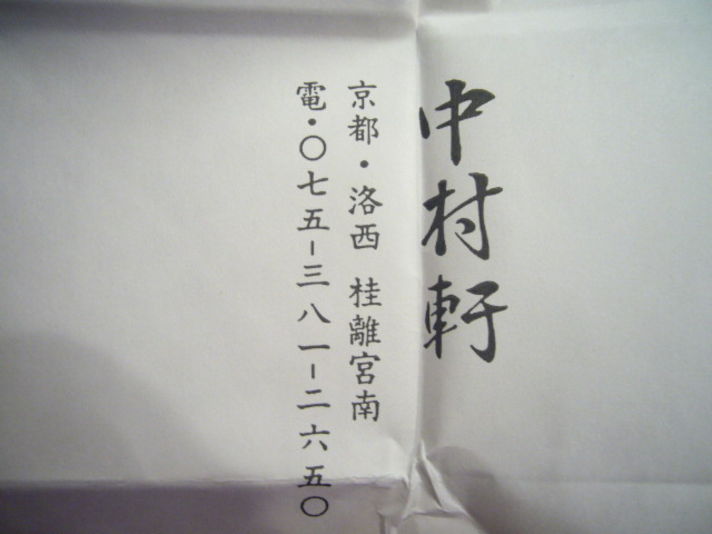 中村軒
京都・洛西 桂離宮南
電・〇七五-三八一-二六五〇